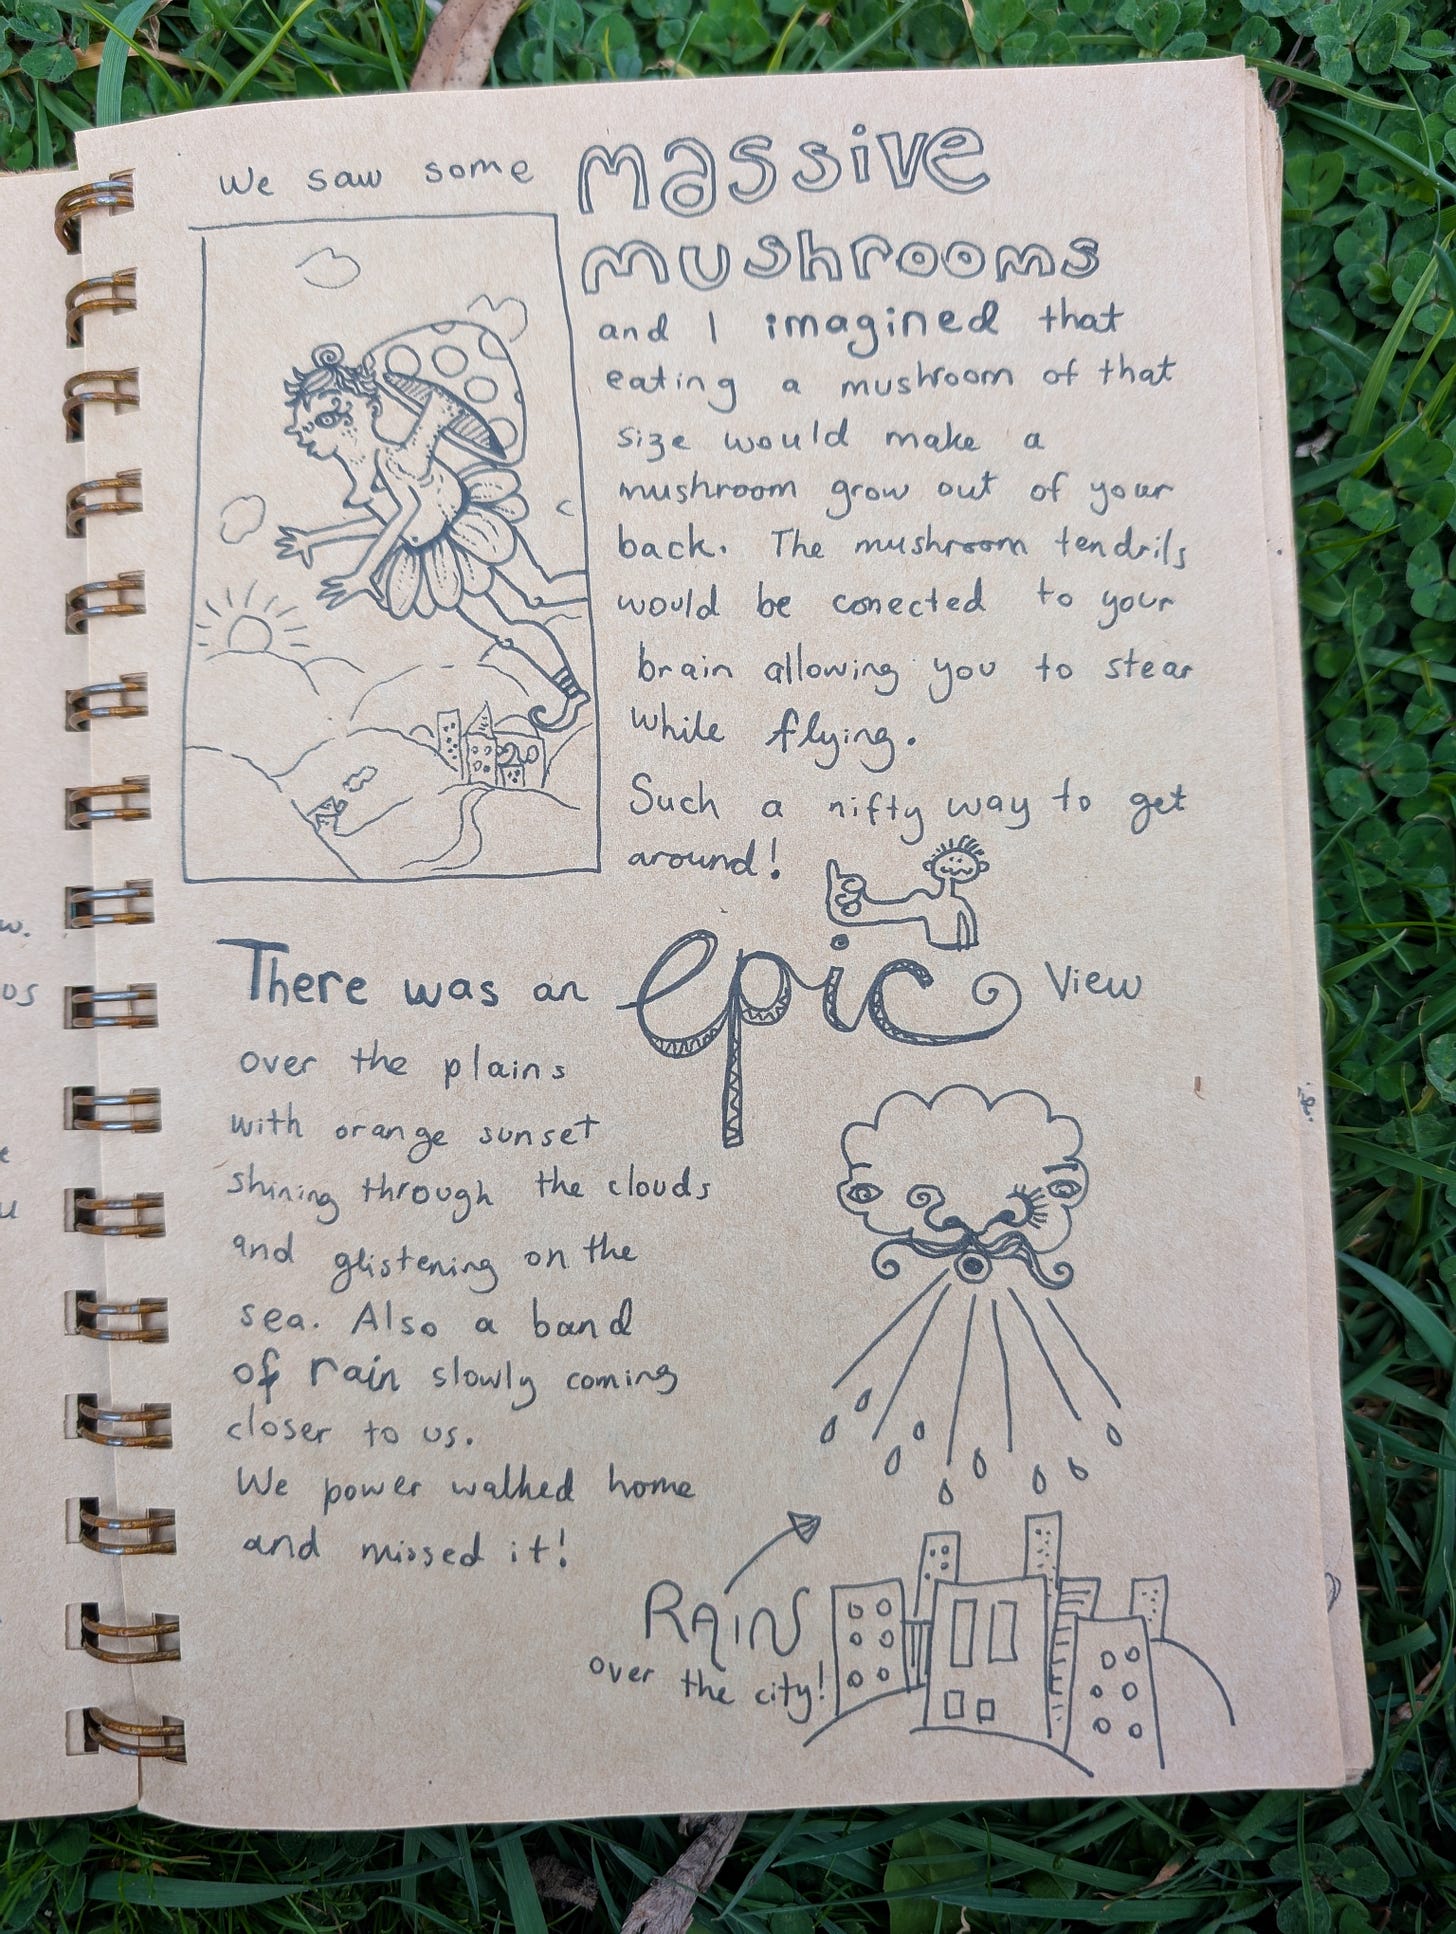 We saw some massive
mushrooms
and I imagined that
eating a mushroom of that
size would make a
mushroom grow out of your
back. The mushroom tendrils
would be conected to your
brain allowing you to stear
while flying.
Such a nifty way to get
around!
There was an epic view
over the plains
with orange sunset
shining through the clouds
and glistening on the
sea. Also a band
of rain slowly coming
closer to us.
We power walked home
and missed it!
RAIN
over the city!